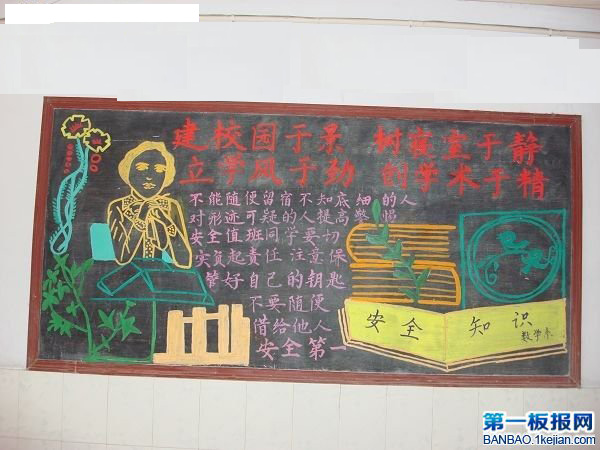 建校园于景 树寝室于静
立学风于劲 创学术于精
不能随便留宿不知底细的人
对形迹可疑的人提高警惕
安全值班同学要切
实负起责任 注意保
管好自己的钥匙
不要随便
借给他人
安全第一
安全知识
数学系
第一板报网
BANBAO.1kejian.com